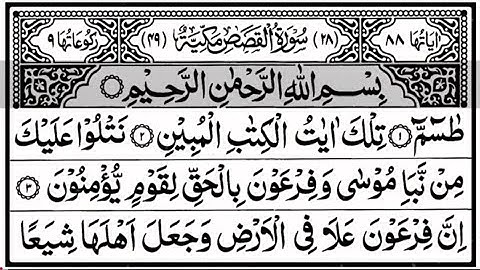 اٰیاتھا ۸۸ (۲۸) سُوْرَةُ الْقَصَصِ مَكِّيَّةٌ (۴۹) رکوعاتھا ۹
بِسْمِ اللّٰهِ الرَّحْمٰنِ الرَّحِيْمِ
طٰسٓمّٓ ۝۱ تِلْكَ اٰيٰتُ الْكِتٰبِ الْمُبِيْنِ ۝۲ نَتْلُوْا عَلَيْكَ
مِنْ نَّبَاِ مُوْسٰى وَفِرْعَوْنَ بِالْحَقِّ لِقَوْمٍ يُّؤْمِنُوْنَ ۝۳
اِنَّ فِرْعَوْنَ عَلَا فِي الْاَرْضِ وَجَعَلَ اَهْلَهَا شِيَعًا